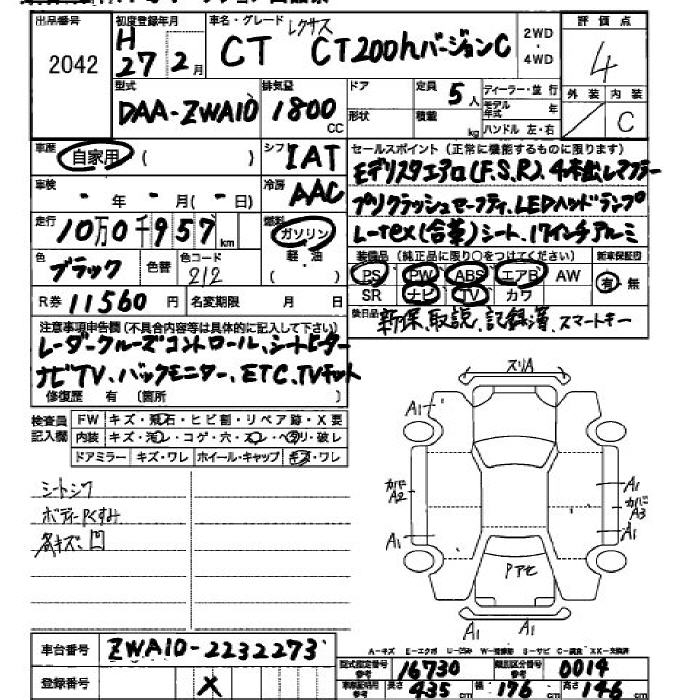 出品番号 初度登録年月 車名・グレード レクサス 2WD・4WD 評価点
2042 H27 2月 CT CT200hバージョンC 4
型式 排気量 ドア 定員 5人 ディーラー・並行 外装 内装
DAA-ZWA10 1800CC 形状 積載 kg モデル年式 年 C
ハンドル 左・右
車歴 自家用 ( ) シフト IAT セールスポイント(正常に機能するものに限ります)
モデリスタエアロ(F.S.R)、4本出しマフラー
車検 - 年 - 月(- 日) 冷房 AAC プリクラッシュセーフティ、LEDヘッドランプ
走行 10万0千957km 燃料 ガソリン L-tex(合革)シート、17インチアルミ
軽・油 装備品(純正品に限り○をつけてください) 新車保証図
色 ブラック 色替 色コード 212 ( ) PS PW ABS エアB AW 有・無
SR ナビ TV カワ
R券 11560円 名変期限 月 日 後日品 新保、取説、記録簿、スマートキー
注意事項申告欄(不具合内容等は具体的に記入して下さい)
レーダークルーズコントロール、シートヒーター
ナビTV、バックモニター、ETC、TVキット
修復歴 有 〔箇所 〕
検査員記入欄 FW キズ・飛石・ヒビ割・リペア跡・X要
内装 キズ・汚レ・コゲ・穴・スレ・ヘタリ・破レ
ドアミラー キズ・ワレ ホイール・キャップ キズ・ワレ
シートシワ
ボディーRくすみ
各キズ、凹
スリA
A1
カバA2
A1
A1
カバA3
A1
Pアセ
A1 A1
車台番号 ZWA10-2232273
登録番号 X
A-キズ E-エクボ U-凹み W-補修跡 S-サビ C-腐食 XX-交換済
型式指定番号 参考 16730 類別区分番号 参考 0014
車両証明用 参考 長さ 435cm 幅 176cm 高さ 146cm